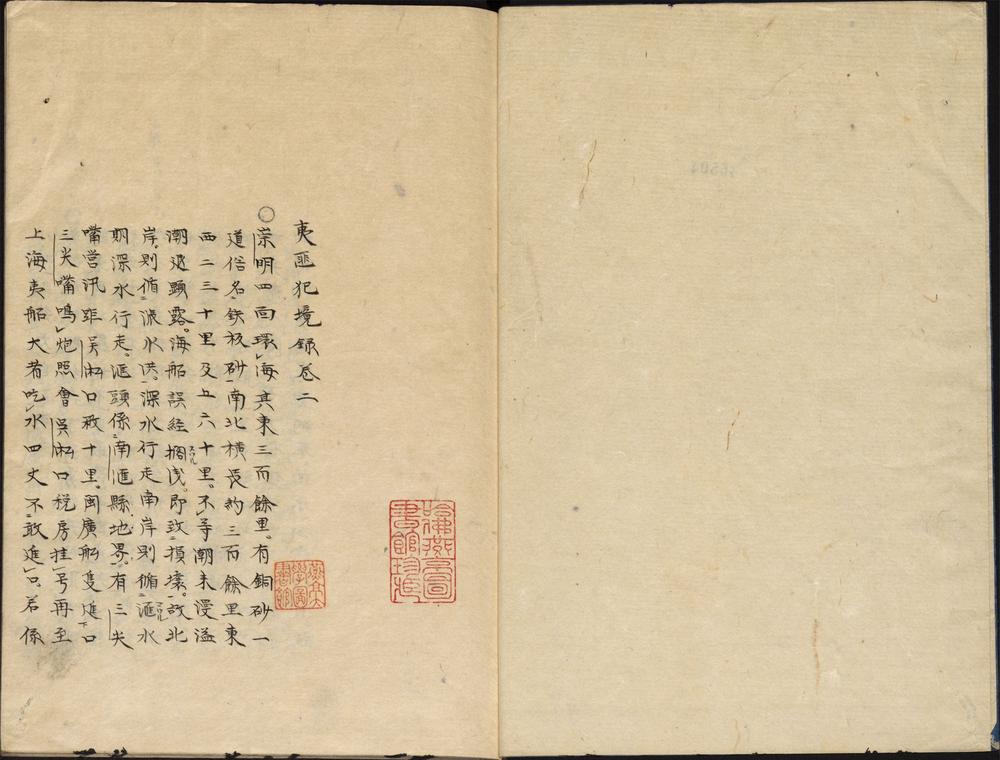 夷匪犯境錄卷二
○崇明四面環海其東三百餘里有銅砂一
道俗名鉄板砂南北橫長約三百餘里東
西二三十里及五六十里不等潮來漫溢
潮退頭露海船誤経擱浅即致損壞故北
岸則循流水洪深水行走南岸則循滙水
期深水行走滙頭係南滙縣地界有三尖
嘴営汛距吳淞口數十里閩廣船隻進口
三尖嘴鳴炮照會吳淞口稅房挂号再至
上海夷船大者吃水四丈不敢進口若係
哈佛燕京圖
書館珍藏